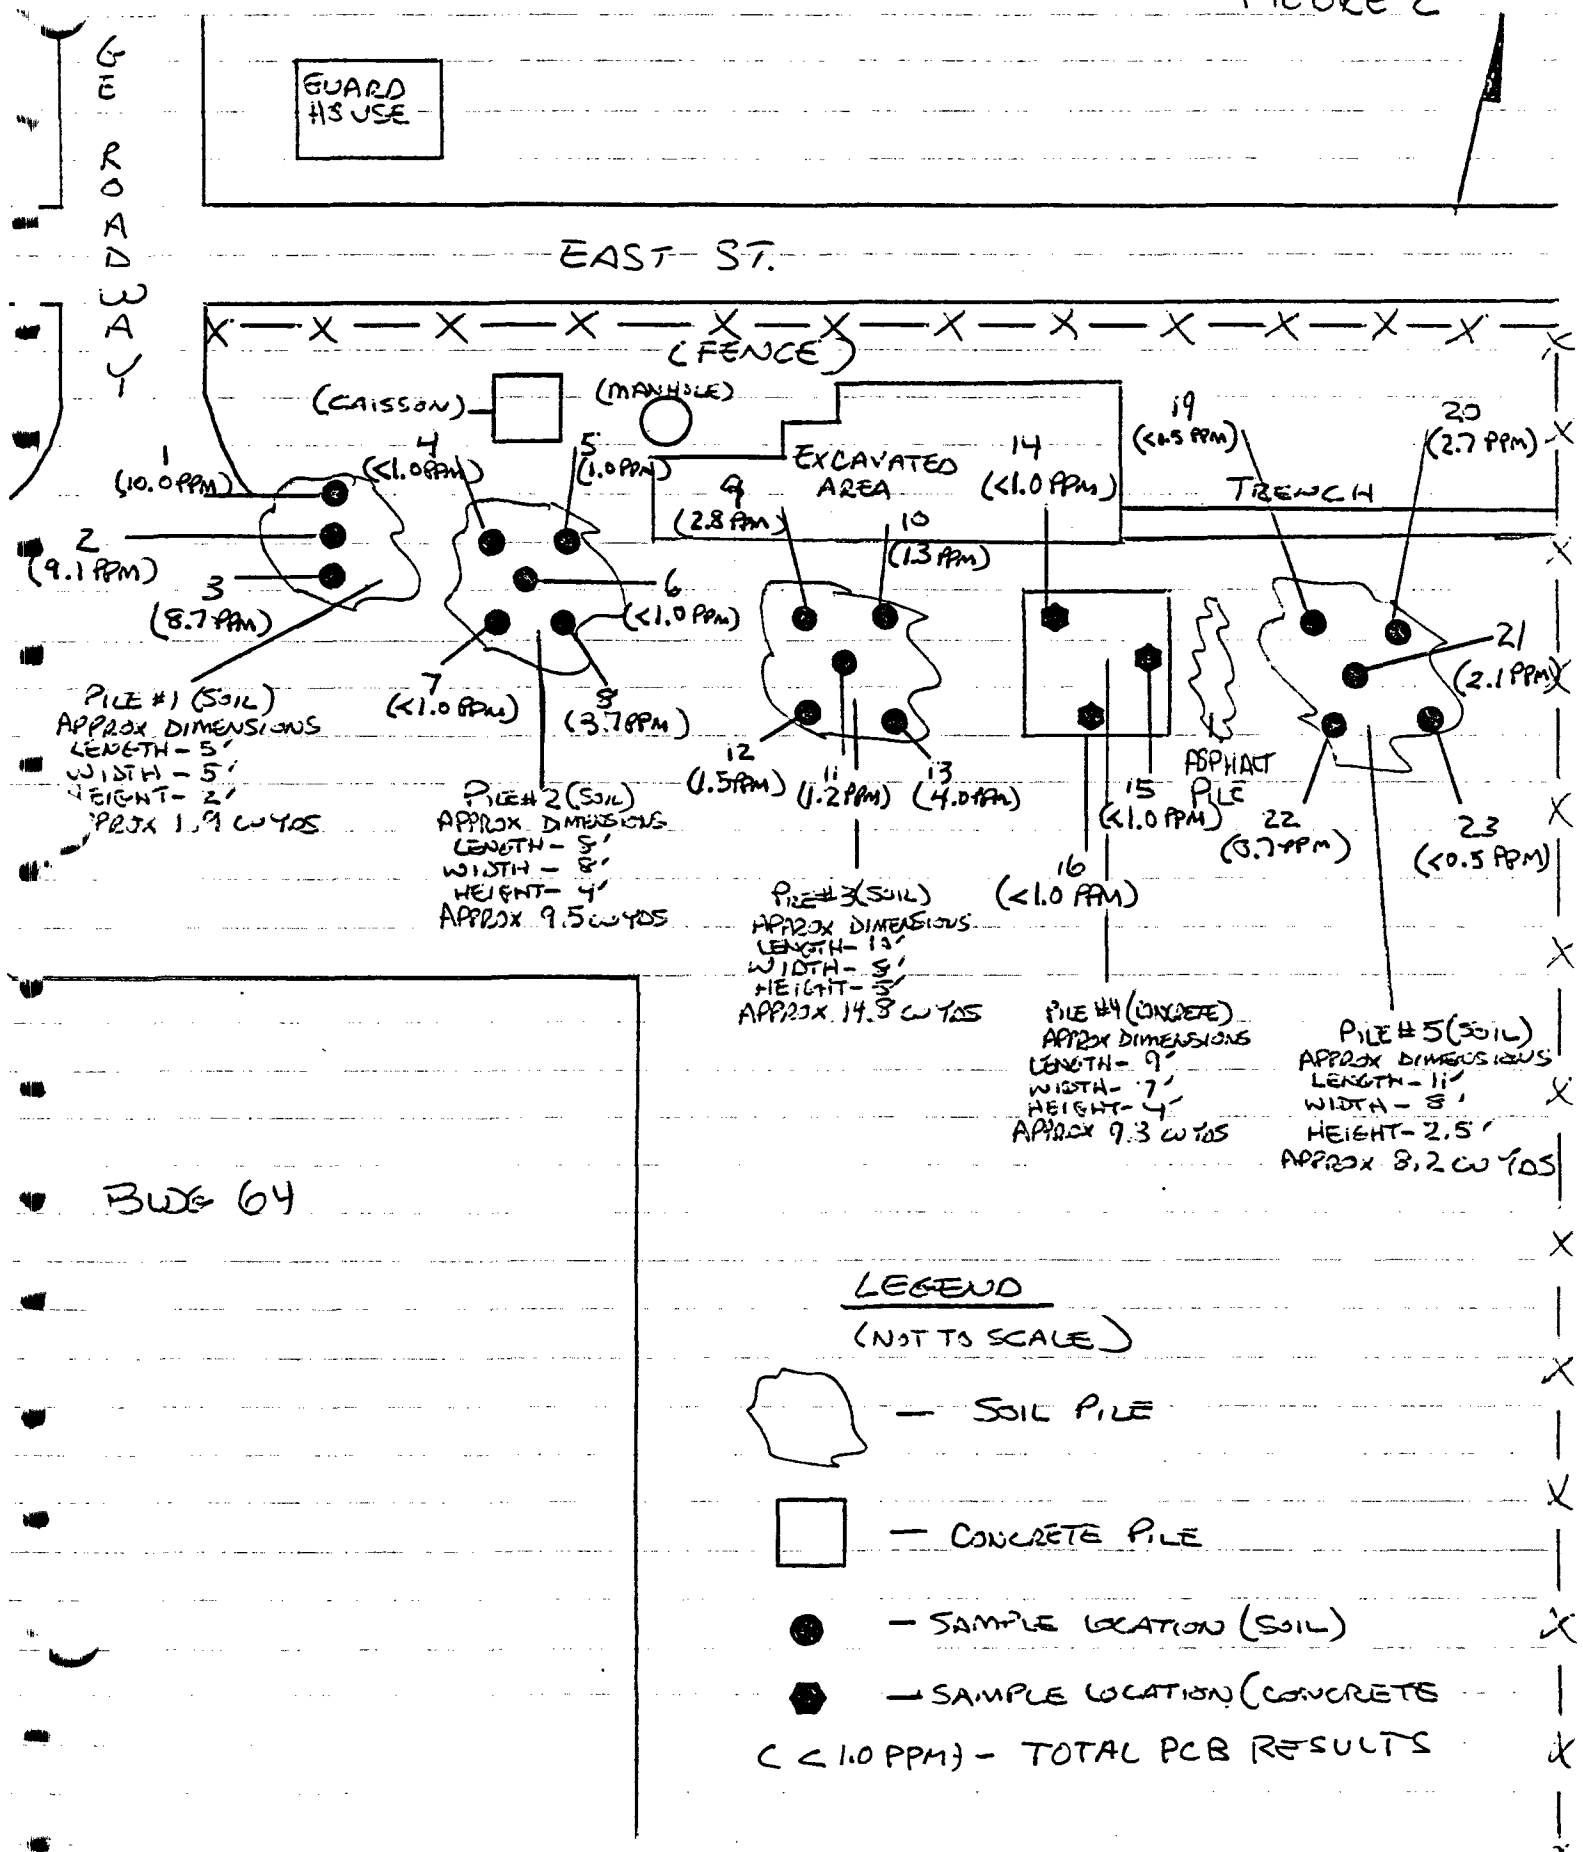 FIGURE 2
GE ROADWAY
GUARD
HOUSE
EAST ST.
(FENCE)
(CAISSON)
(MANHOLE)
EXCAVATED
AREA
TRENCH
1
(10.0 PPM)
2
(9.1 PPM)
3
(8.7 PPM)
4
(<1.0 PPM)
5
(1.0 PPM)
6
(<1.0 PPM)
7
(<1.0 PPM)
8
(3.7 PPM)
9
(2.8 PPM)
10
(1.3 PPM)
11
(1.2 PPM)
12
(1.5 PPM)
13
(4.0 PPM)
14
(<1.0 PPM)
15
(<1.0 PPM)
16
(<1.0 PPM)
19
(<0.5 PPM)
20
(2.7 PPM)
21
(2.1 PPM)
22
PPM)
23
(<0.5 PPM)
ASPHALT
PILE
PILE #1 (SOIL)
APPROX DIMENSIONS
LENGTH - 5'
WIDTH - 5'
HEIGHT - 2'
APPROX 1.9 CU YDS
PILE #2 (SOIL)
APPROX DIMENSIONS
LENGTH - 8'
WIDTH - 8'
HEIGHT - 4'
APPROX 9.5 CU YDS
PILE #3 (SOIL)
APPROX DIMENSIONS
LENGTH - 10'
WIDTH - 8'
HEIGHT - 5'
APPROX 14.8 CU YDS
PILE #4 (CONCRETE)
APPROX DIMENSIONS
LENGTH - 9'
WIDTH - 7'
HEIGHT - 4'
APPROX 9.3 CU YDS
PILE #5 (SOIL)
APPROX DIMENSIONS
LENGTH - 11'
WIDTH - 8'
HEIGHT - 2.5'
APPROX 8.2 CU YDS
BLDG 64
LEGEND
(NOT TO SCALE)
— SOIL PILE
— CONCRETE PILE
— SAMPLE LOCATION (SOIL)
— SAMPLE LOCATION (CONCRETE
(<1.0 PPM) - TOTAL PCB RESULTS